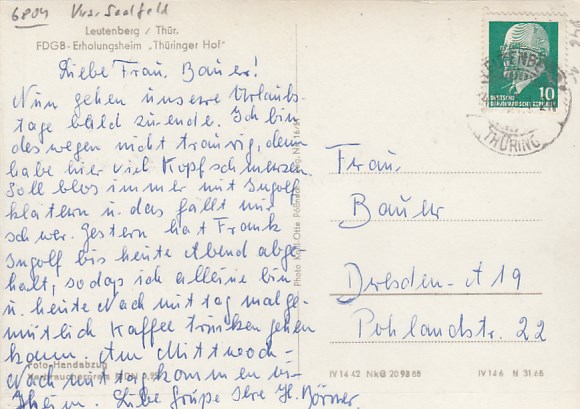 6804 Krs. Saalfeld
Leutenberg / Thür.
FDGB-Erholungsheim „Thüringer Hof"
Liebe Frau Bauer!
Nun gehen unsere Urlaubs-
tage bald zuende. Ich bin
deswegen nicht traurig, denn
habe hier viel Kopfschmerzen.
Soll blos immer mit Ingolf
klätern u. das fällt mir
schwer. Gestern hat Frank
Ingolf bis heute Abend abge-
holt, sodaß ich alleine bin
u. heute Nachmittag mal ge-
mütlich Kaffee trinken gehen
kann. Am Mittwoch-
Nachmittag kommen wir
heim. Liebe Grüße Ihre
Foto-Handabzug
Photo Karl-Otto
DEUTSCHE
DEMOKRATISCHE REPUBLIK
10
LEUTENBERG
THÜRING
Frau
Bauer
Dresden-A 19
Pohlandstr. 22
IV 14 42 NkG 20 93 68
IV 14 6 N 31 68